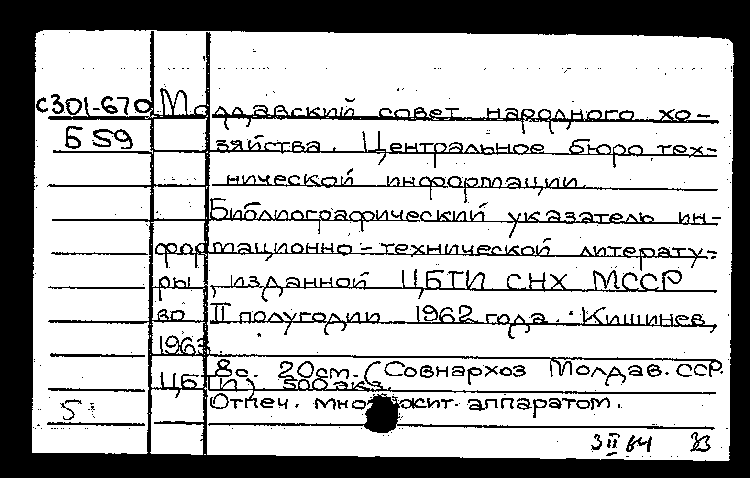 С301-670 Молдавский совет народного хо-
Б59 зяйства. Центральное бюро тех-
нической информации.
Библиографический указатель ин-
формационно-технической литерату-
ры, изданной ЦБТИ СНХ МССР
во II полугодии 1962 года. Кишинев,
1963.
8с. 20см. (Совнархоз Молдав. ССР.
ЦБТИ) 500 экз.
5 Отпеч. аппаратом.
3 II 64